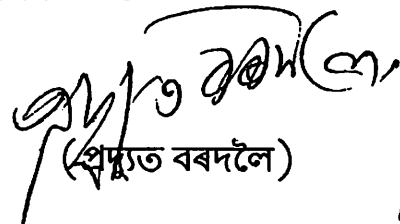 প্রদ্যুত বৰদলৈ
(প্রদ্যুত বৰদলৈ)